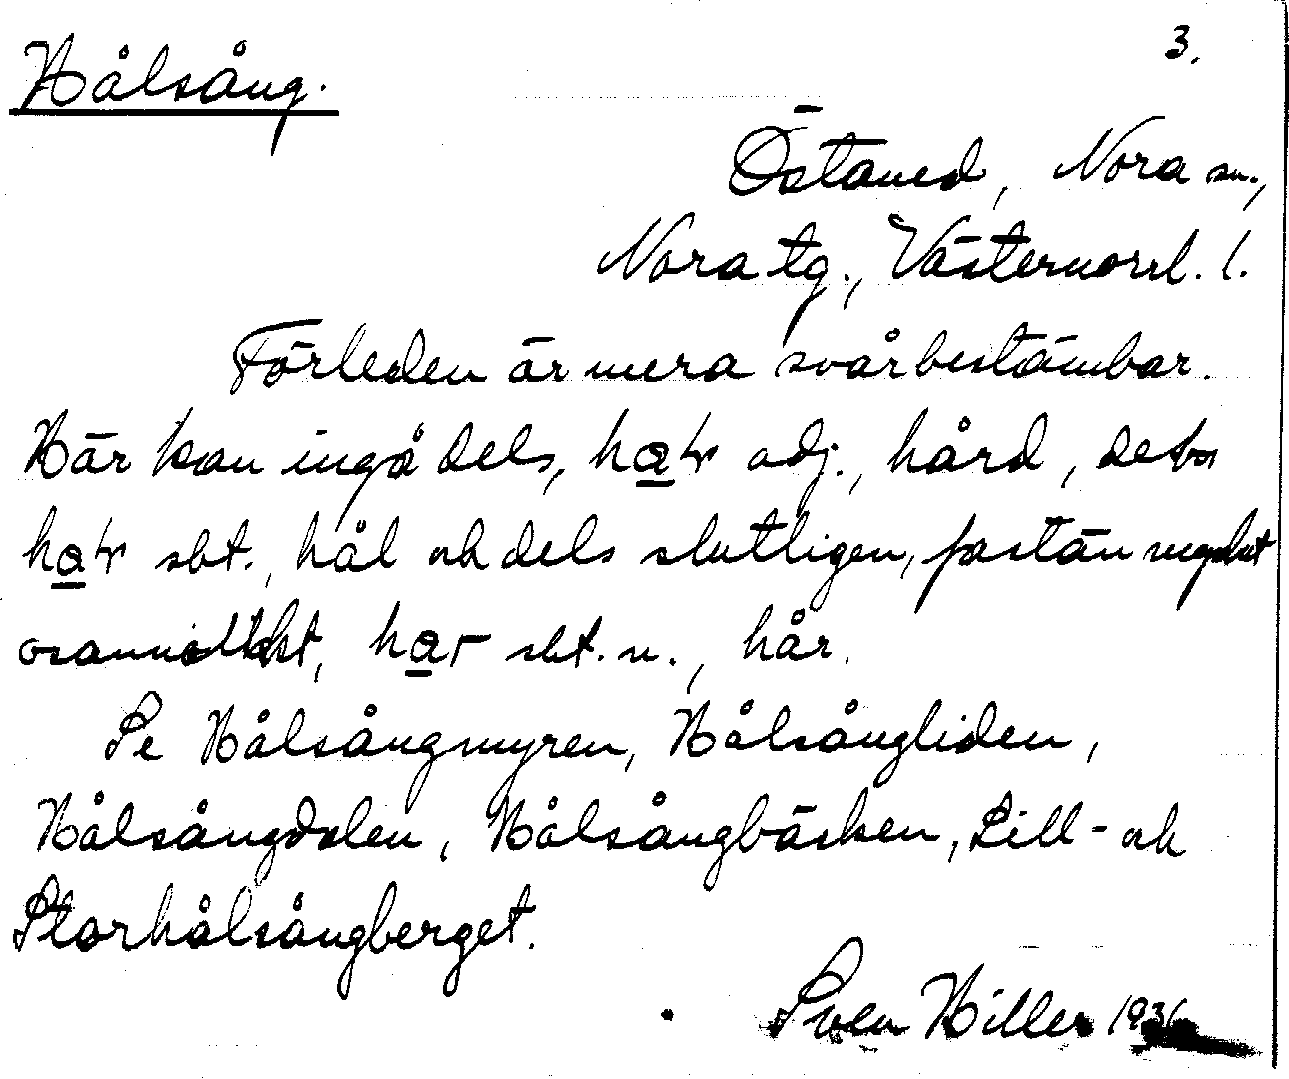 3.
Hålsång.
Östaned, Nora sn.,
Nora tg., Västernorrl. l.
Förleden är mera svårbestämbar.
Här kan ingå dels, adj., hård, dels
sbt., hål och dels slutligen, fastän
osannolikt, sbt. n., hår.
Se Hålsångmyren, Hålsångliden,
Hålsångdalen, Hålsångbäcken, Lill- och
Storhålsångberget.
Sven Hiller 1936